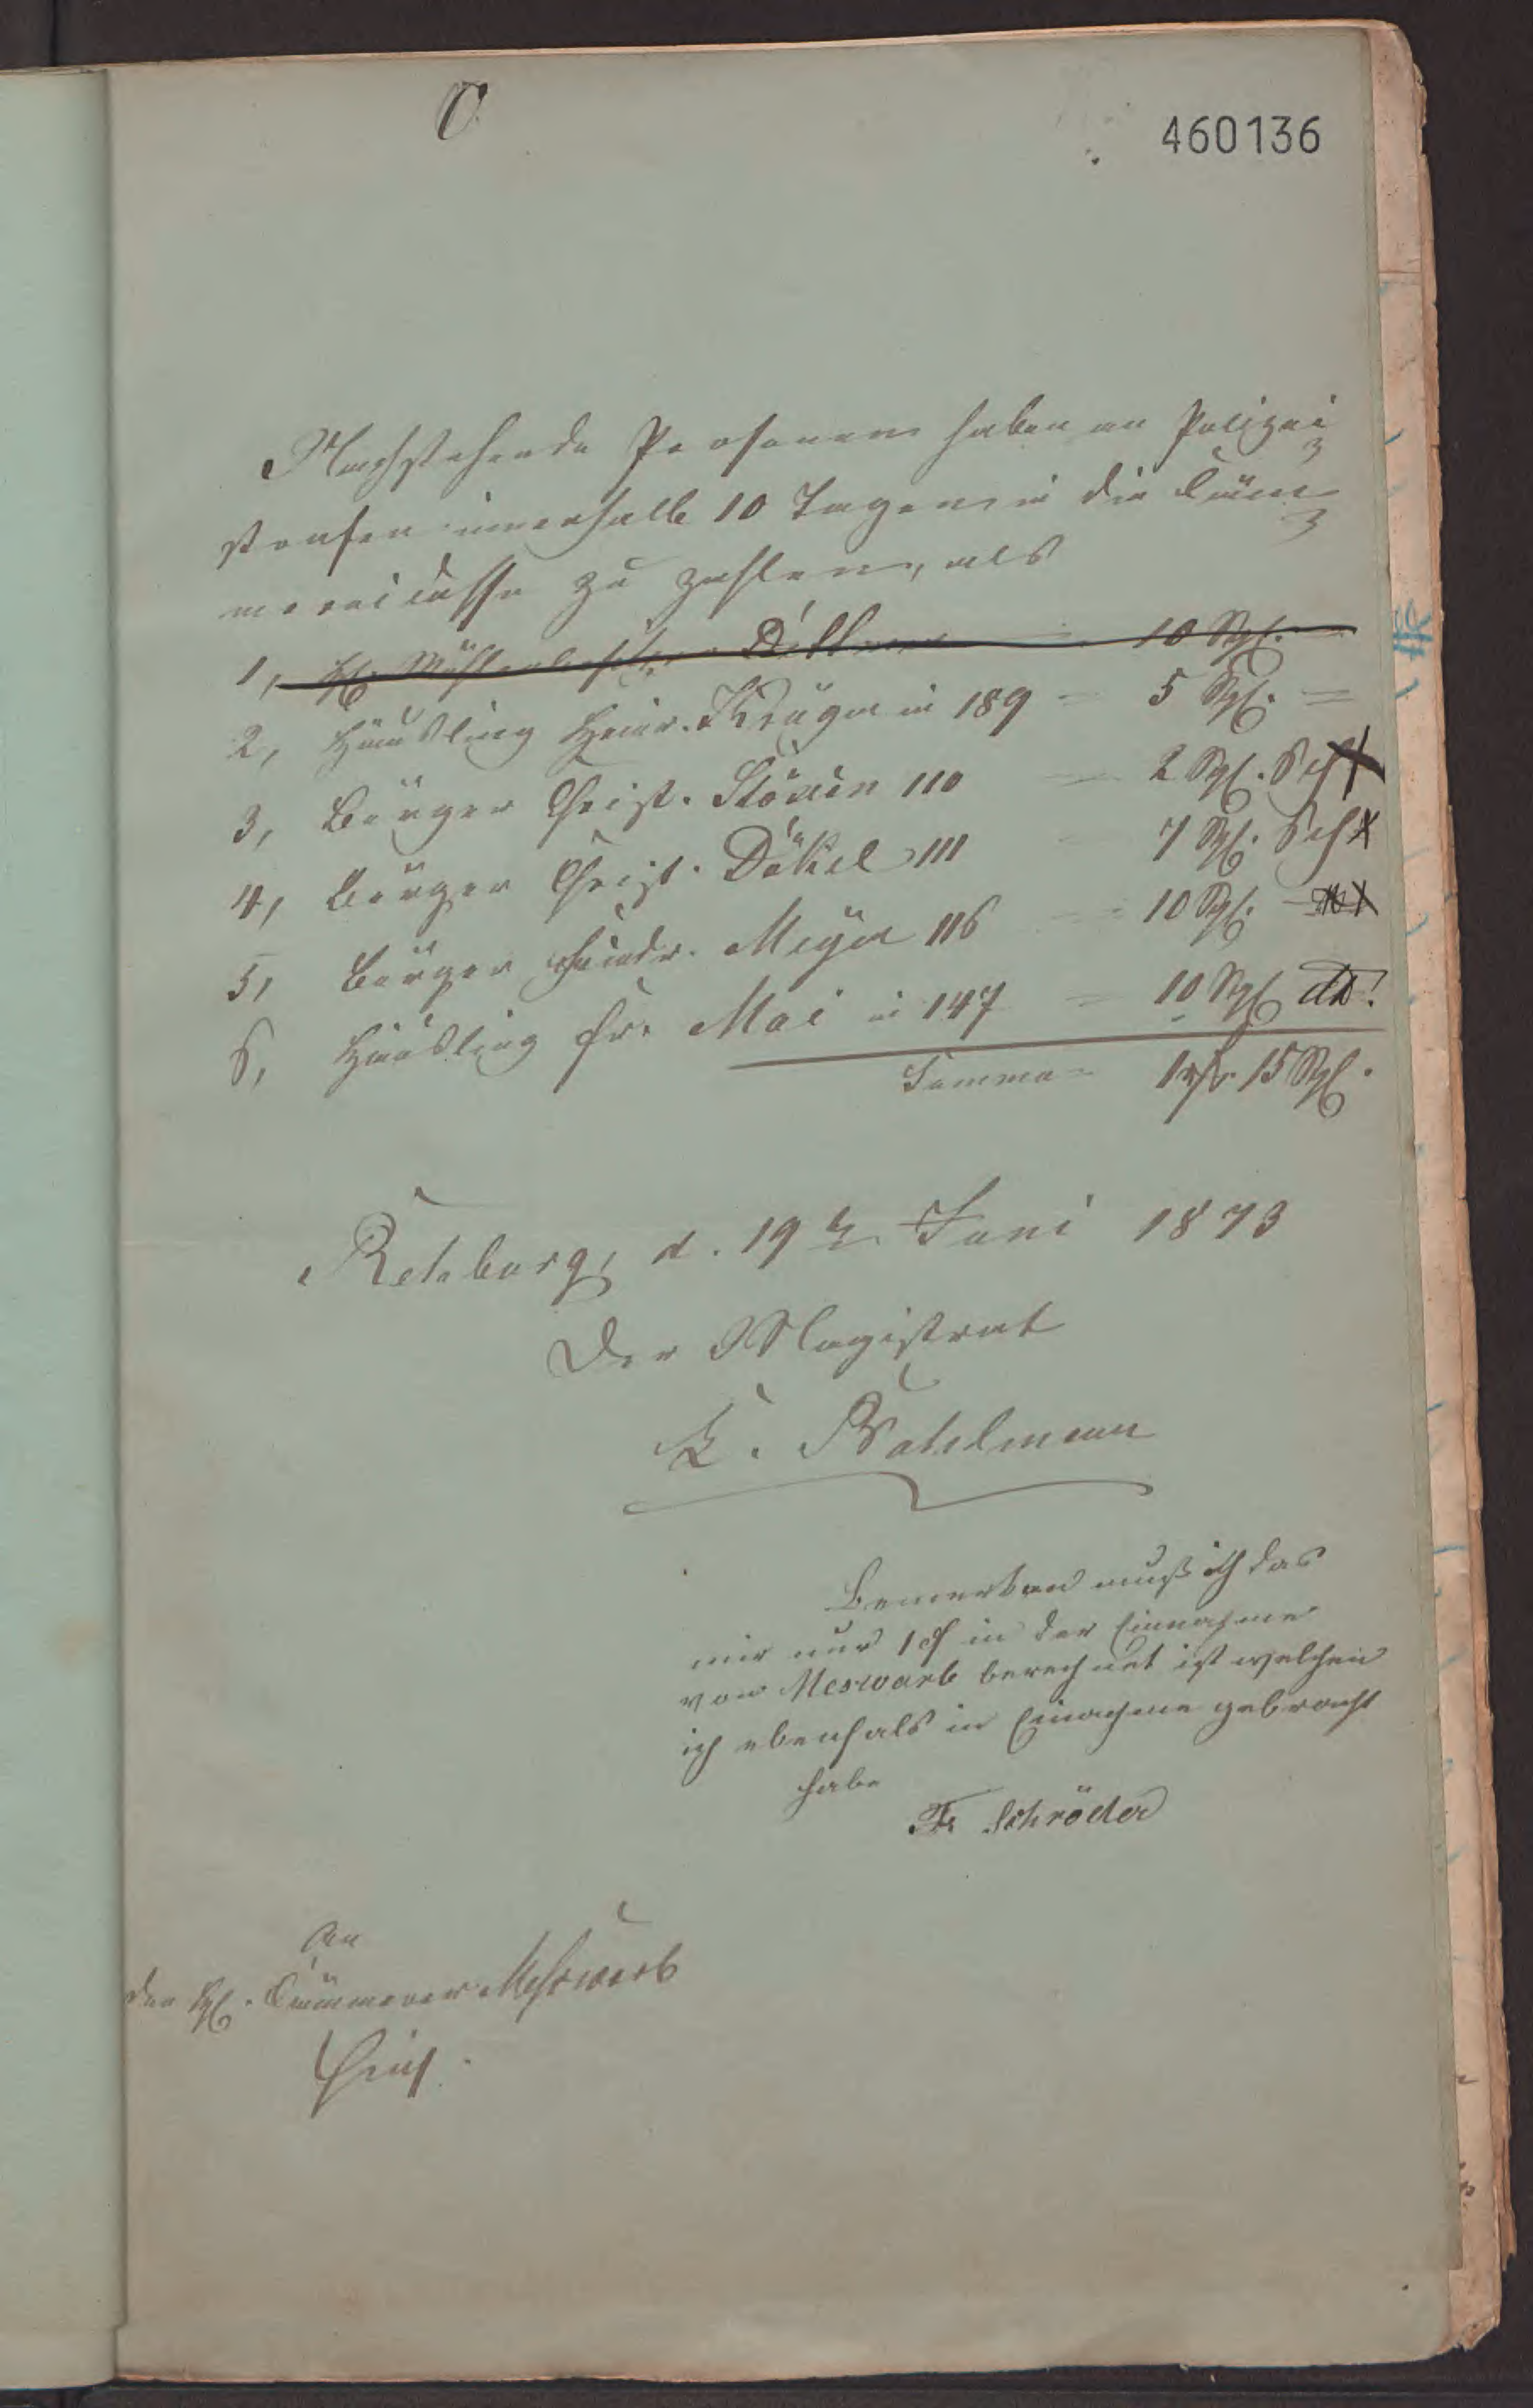 C.
460136
Nachstehende Personen haben an Polizei
strafen innerhalb 10 Tagen in die Cäm
mereicasse zu zahlen, als
1, H. Mühlenbesitzer 10 Sgf.
2, Häusling Heinr. Krüger in 189 = 5 Sgf. =
3, Bürger Christ. Stöxen 110 = 2 Sgf. 6 Pf
4, Bürger Christ. Däkel 111 = 7 Sgf. 6 Pf
5, Bürger Meyer 116 = 10 Sgf.
6, Häusling Fr. Mai in 147 = 10 Sgf
Summa = 1 rf 15 Sgf.
Rehburg, d. 19t Juni 1873
Der Magistrat
E. Bahlmann
Bemerken muß ich das
mir nur 1 in der Einnahme
von Meswarb berechnet ist welchen
ich ebenfals in Einahme gebracht
habe
Fr. Schröder
An
den H. Cämmerer Meswarb
hies.